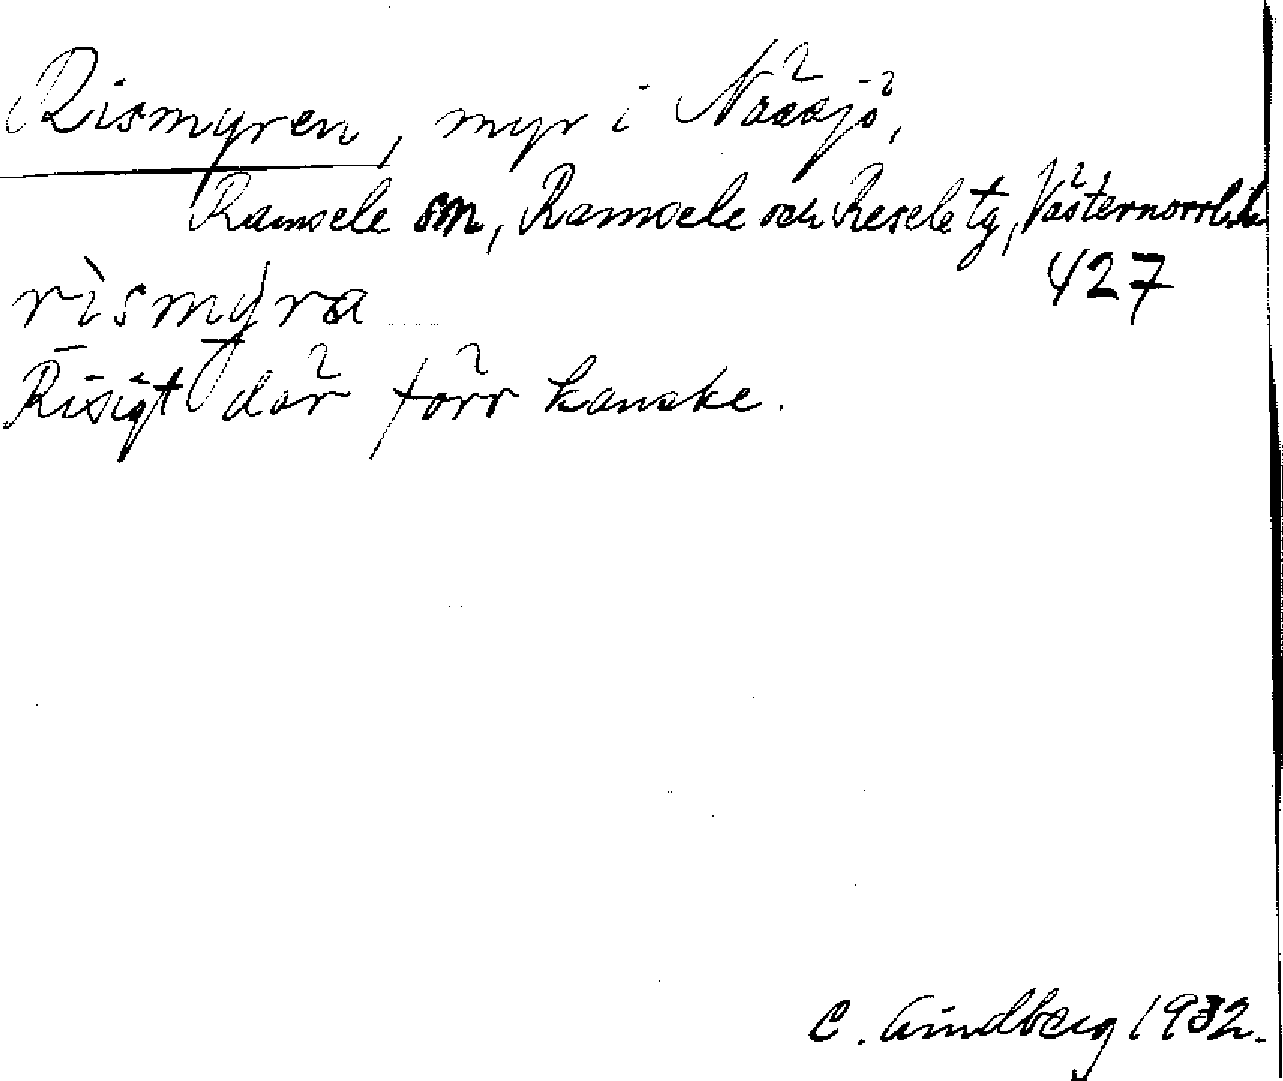 Rismyren, myr i Nässjö,
Ramsele sn, Ramsele och Resele tg, Västernorrl. l.
427
rìsmy̆ra
Risigt där förr kanske.
C. Lindberg 1932.